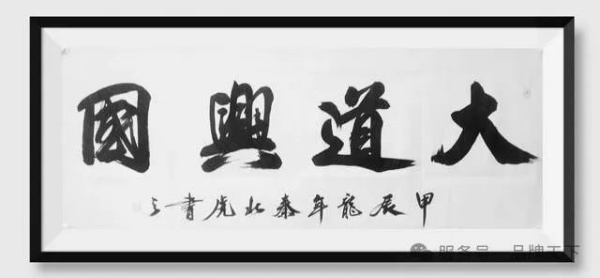 大道興國
甲辰龍年秦北虎書之
服务号 品牌天下